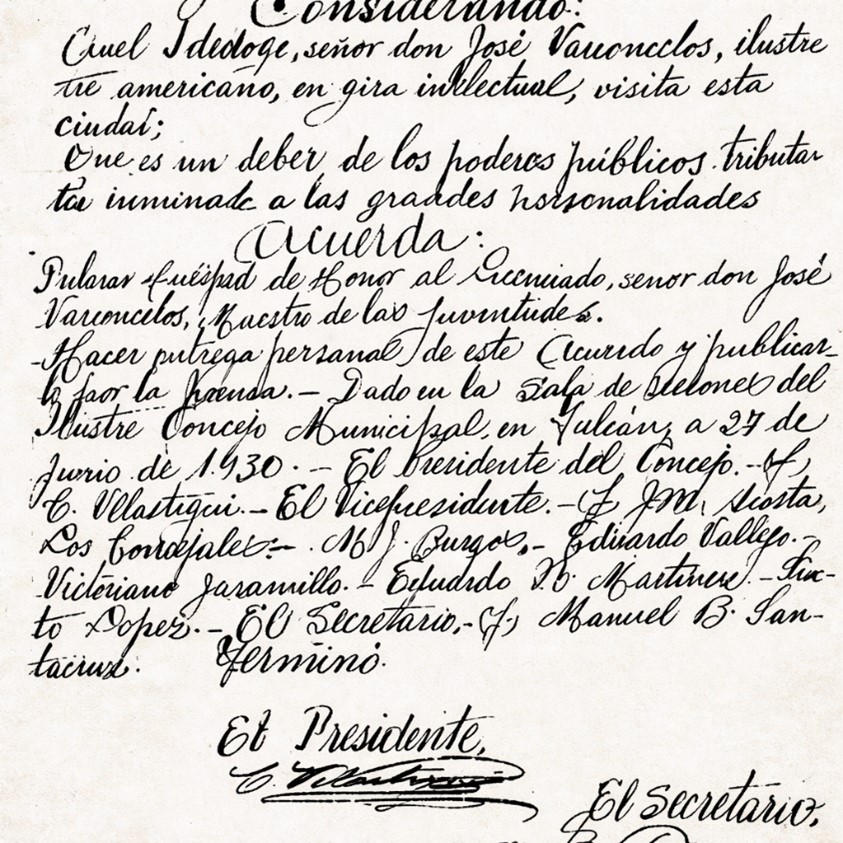 Considerando:
Que el Ideologe, señor don José Vasconcelos, ilustre
tre americano, en gira intelectual, visita esta
ciudad;
Que es un deber de los poderes públicos tributar
a las grandes personalidades
Acuerda:
Huésped de Honor al Licenciado, senor don José
Vasconcelos, Maestro de las Juventudes.
Hacer entrega personal de este Acuerdo y publicar-
lo por la prensa. — Dado en la Sala de Sesiones del
Ilustre Concejo Municipal, en Tulcán, a 27 de
Junio de 1.930. — El Presidente del Concejo. - (f)
C. Vllastigui. — El Vicepresidente. — (f) J.M. Acosta,
Los Concejales: — M. J. Burgos, — Eduardo Vallejo. —
Victoriano Jaramillo. — Eduardo N. Martínez. — Fruc-
to Lopez. — El Secretario, - (f,) Manuel B. San-
tacruz. Terminó.
El Presidente,
El Secretario,